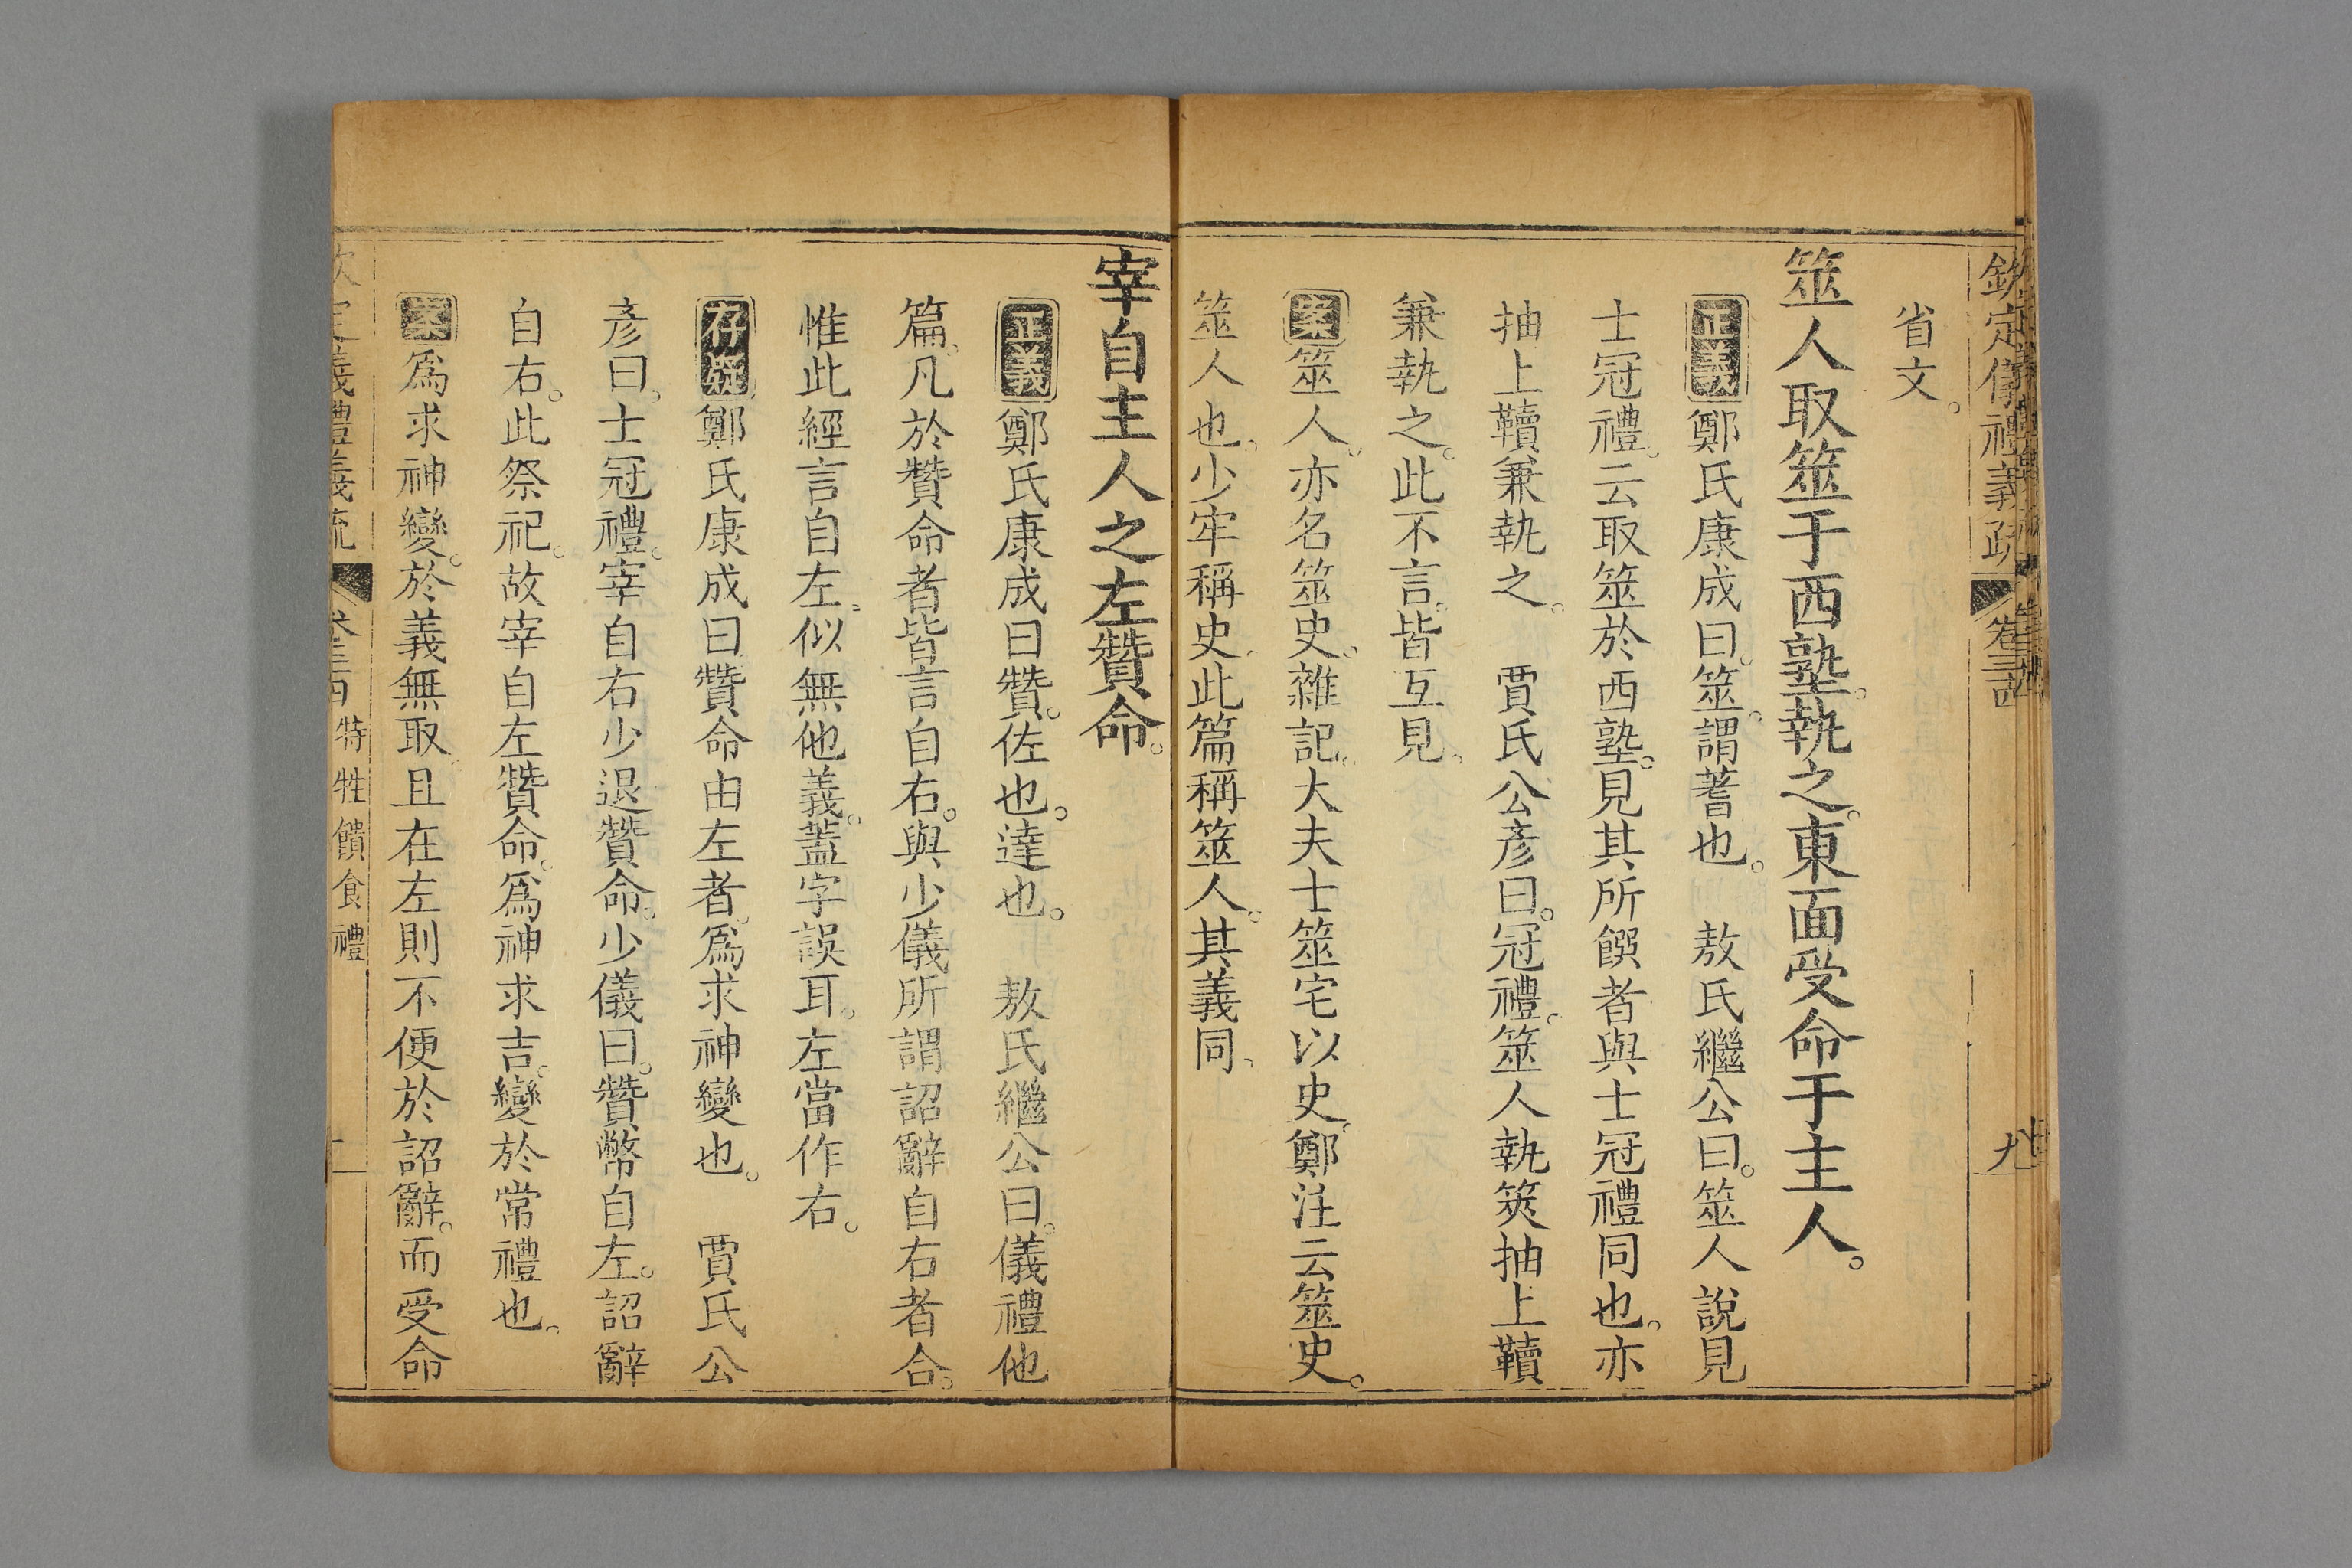 欽定儀禮義疏 卷三十四 九
省文。
筮人取筮于西塾。執之。東面受命于主人。
正義鄭氏康成曰。筮。謂蓍也。 敖氏繼公曰。筮人說見
士冠禮。云取筮於西塾。見其所饌者與士冠禮同也。亦
抽上韇兼執之。 賈氏公彥曰。冠禮。筮人執筴抽上韇
兼執之。此不言。皆互見。
案筮人。亦名筮史。雜記。大夫士筮宅以史。鄭注云筮史。
筮人也。少牢稱史。此篇稱筮人。其義同。
宰自主人之左贊命。
正義鄭氏康成曰贊。佐也。達也。 敖氏繼公曰。儀禮他
篇。凡於贊命者皆言自右。與少儀所謂詔辭自右者合。
惟此經言自左。似無他義。蓋字誤耳。左當作右。
存疑鄭氏康成曰贊命由左者。爲求神變也。 賈氏公
彥曰。士冠禮。宰自右少退贊命。少儀曰。贊幣自左。詔辭
自右。此祭祀。故宰自左贊命。爲神求吉。變於常禮也。
案爲求神變。於義無取。且在左則不便於詔辭。而受命
定義禮義疏 特牲饋食禮